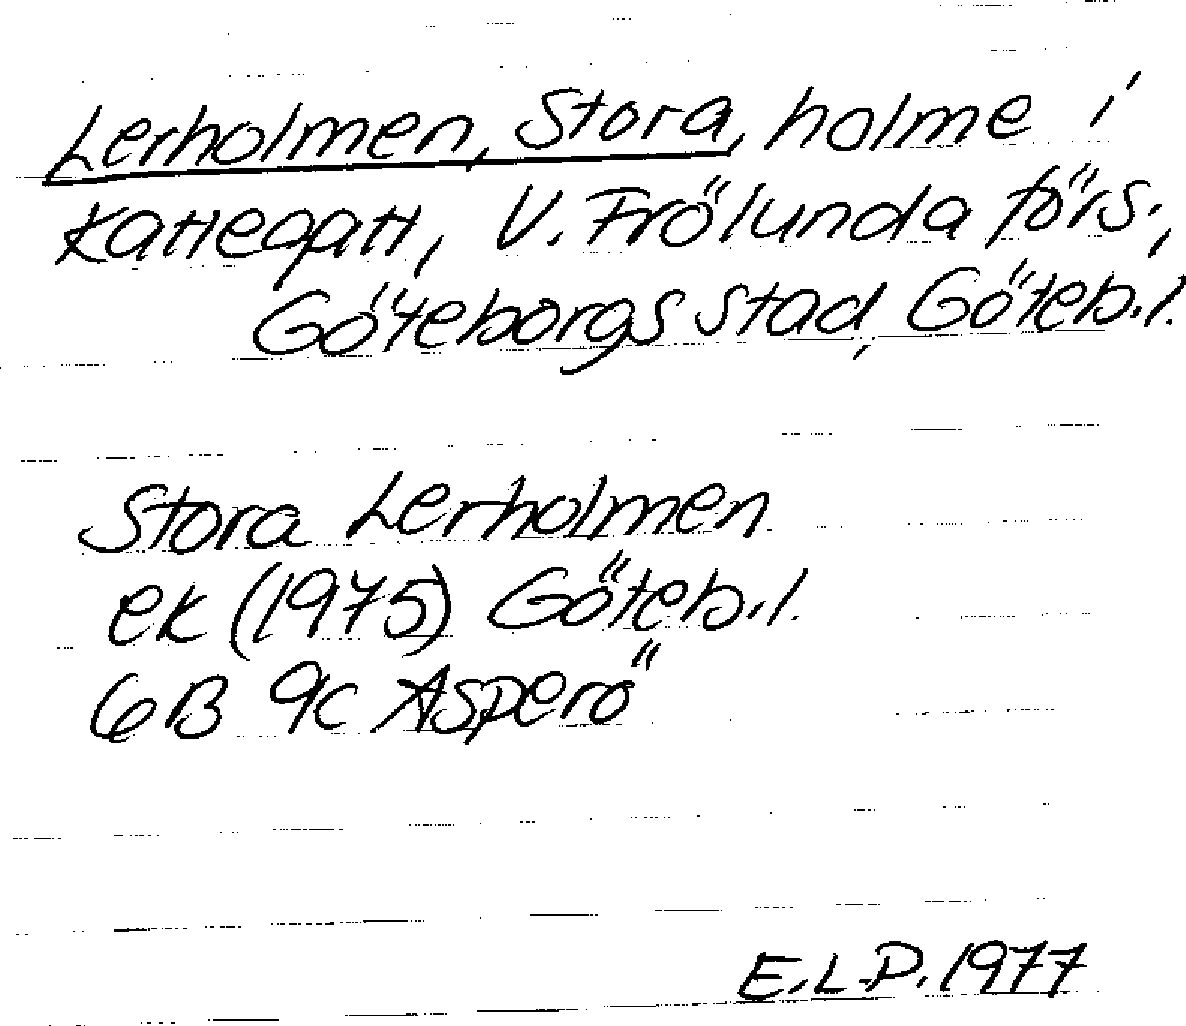 Lerholmen, Stora, holme i
Kattegatt, V. Frölunda förs.,
Göteborgs stad, Göteb.l.
Stora Lerholmen
ek (1975) Göteb.l.
6B 9c Asperö
E.L.P. 1977